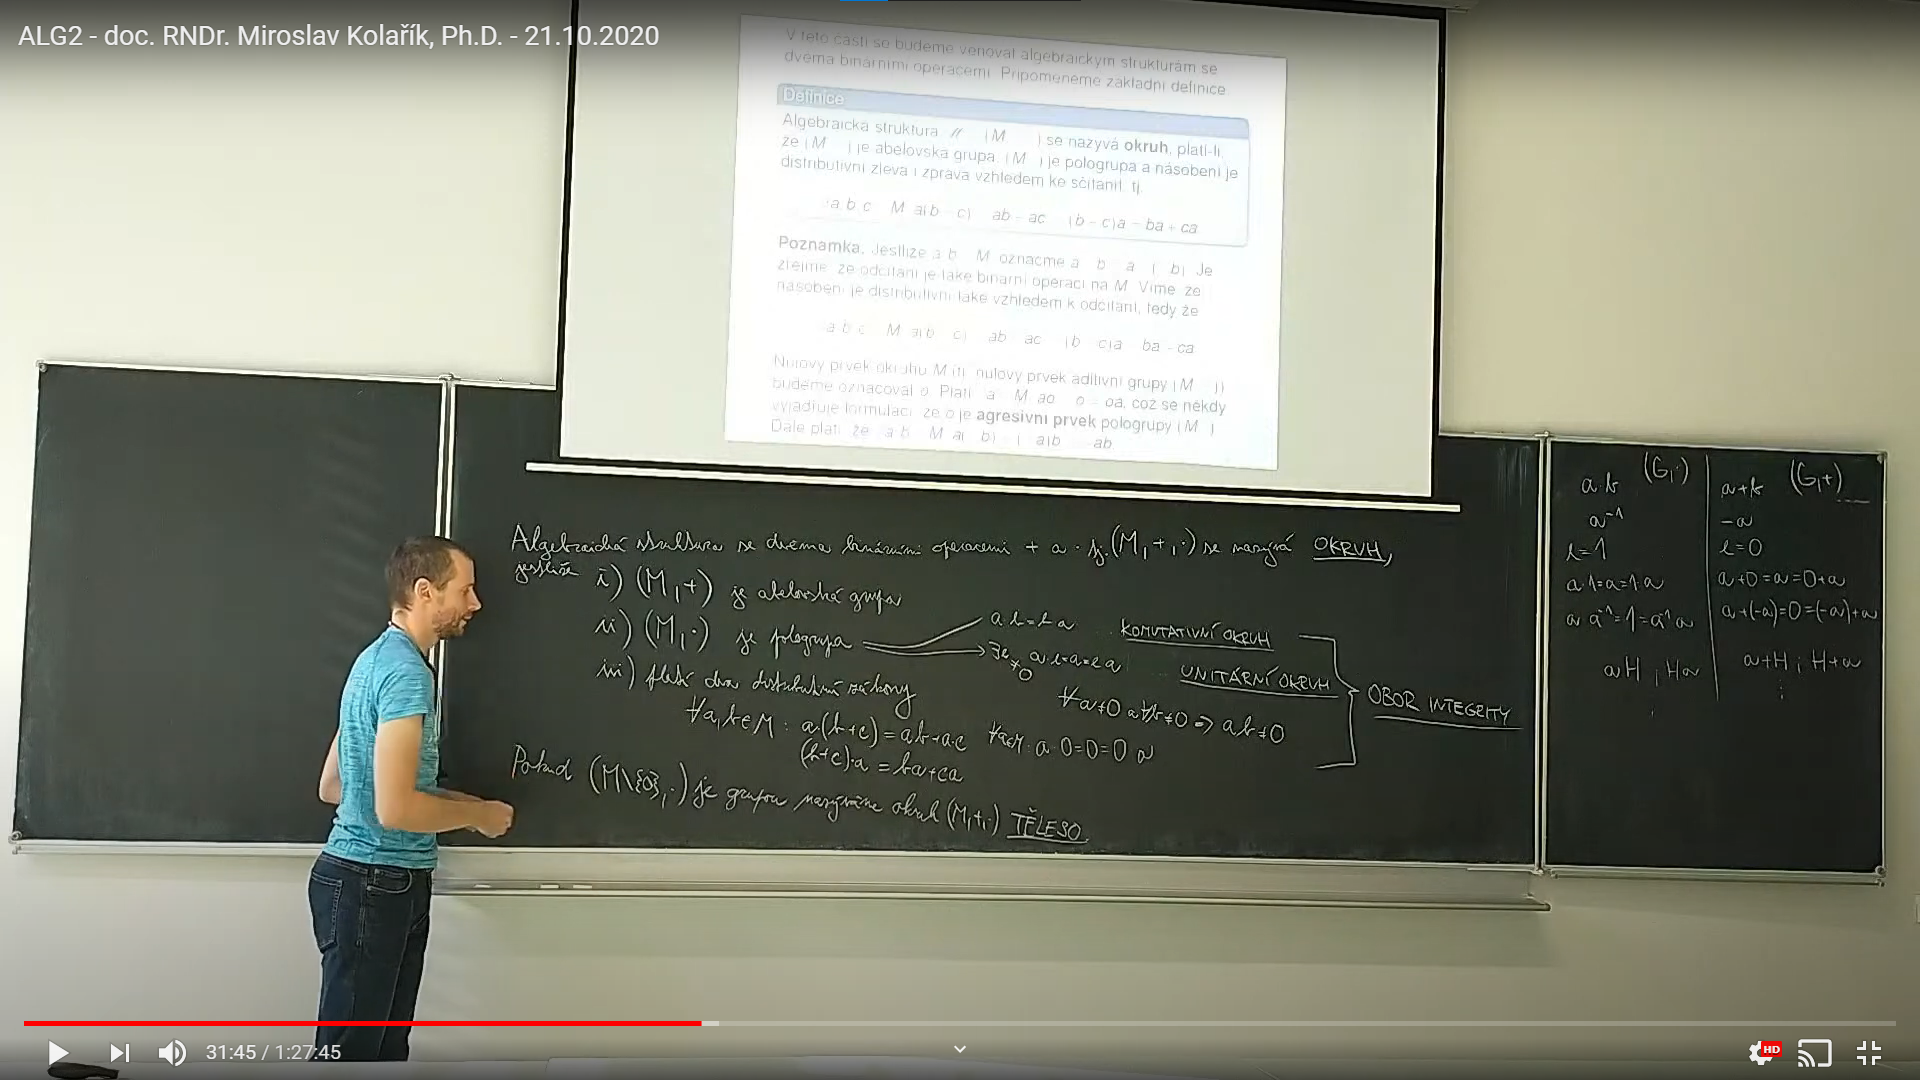 ALG2 - doc. RNDr. Miroslav Kolařík, Ph.D. - 21.10.2020
V této části se budeme věnovat algebraickým strukturám se
dvěma binárními operacemi. Připomeneme základní definice
Definice
Algebraická struktura (M ) se nazývá okruh, platí-li,
že (M ) je abelovská grupa, (M ) je pologrupa a násobení je
distributivní zleva i zprava vzhledem ke sčítání, tj.
a b c M a(b c) ab ac (b c)a ba + ca
Poznámka. Jestliže a b M označme a b a ( b) Je
zřejmé, že odčítání je také binární operací na M. Víme, že
násobení je distributivní také vzhledem k odčítání, tedy že
a b c M a(b c) ab ac (b c)a ba - ca
Nulový prvek okruhu M (tj. nulový prvek aditivní grupy (M ))
budeme označovat o. Platí a M ao o = oa, což se někdy
vyjadřuje formulací, že o je agresivní prvek pologrupy (M )
Dále platí, že a b M a( b) ( a)b ab
Algebraická struktura se dvěma binárními operacemi + a · tj. (M,+,·) se nazývá OKRUH,
jestliže i) (M,+) je abelovská grupa
ii) (M,·) je pologrupa
a b = b a KOMUTATIVNÍ OKRUH
∃e≠0 a·e=a=e·a UNITÁRNÍ OKRUH
iii) platí dva distributivní zákony
∀a≠0 a ∀b≠0 ⇒ ab≠0
OBOR INTEGRITY
∀a,b∈M : a·(b+c) = ab+a·c ∀a∈M: a·0=0=0·a
(b+c)·a = ba+ca
Pokud (M\{0},·) je grupou nazýváme okruh (M,+,·) TĚLESO.
(G,·)
a·b
a⁻¹
e=1
a·1=a=1·a
a·a⁻¹=1=a⁻¹·a
aH ; Ha
(G,+)
a+b
-a
e=0
a+0=a=0+a
a+(-a)=0=(-a)+a
a+H ; H+a
31:45 / 1:27:45
HD